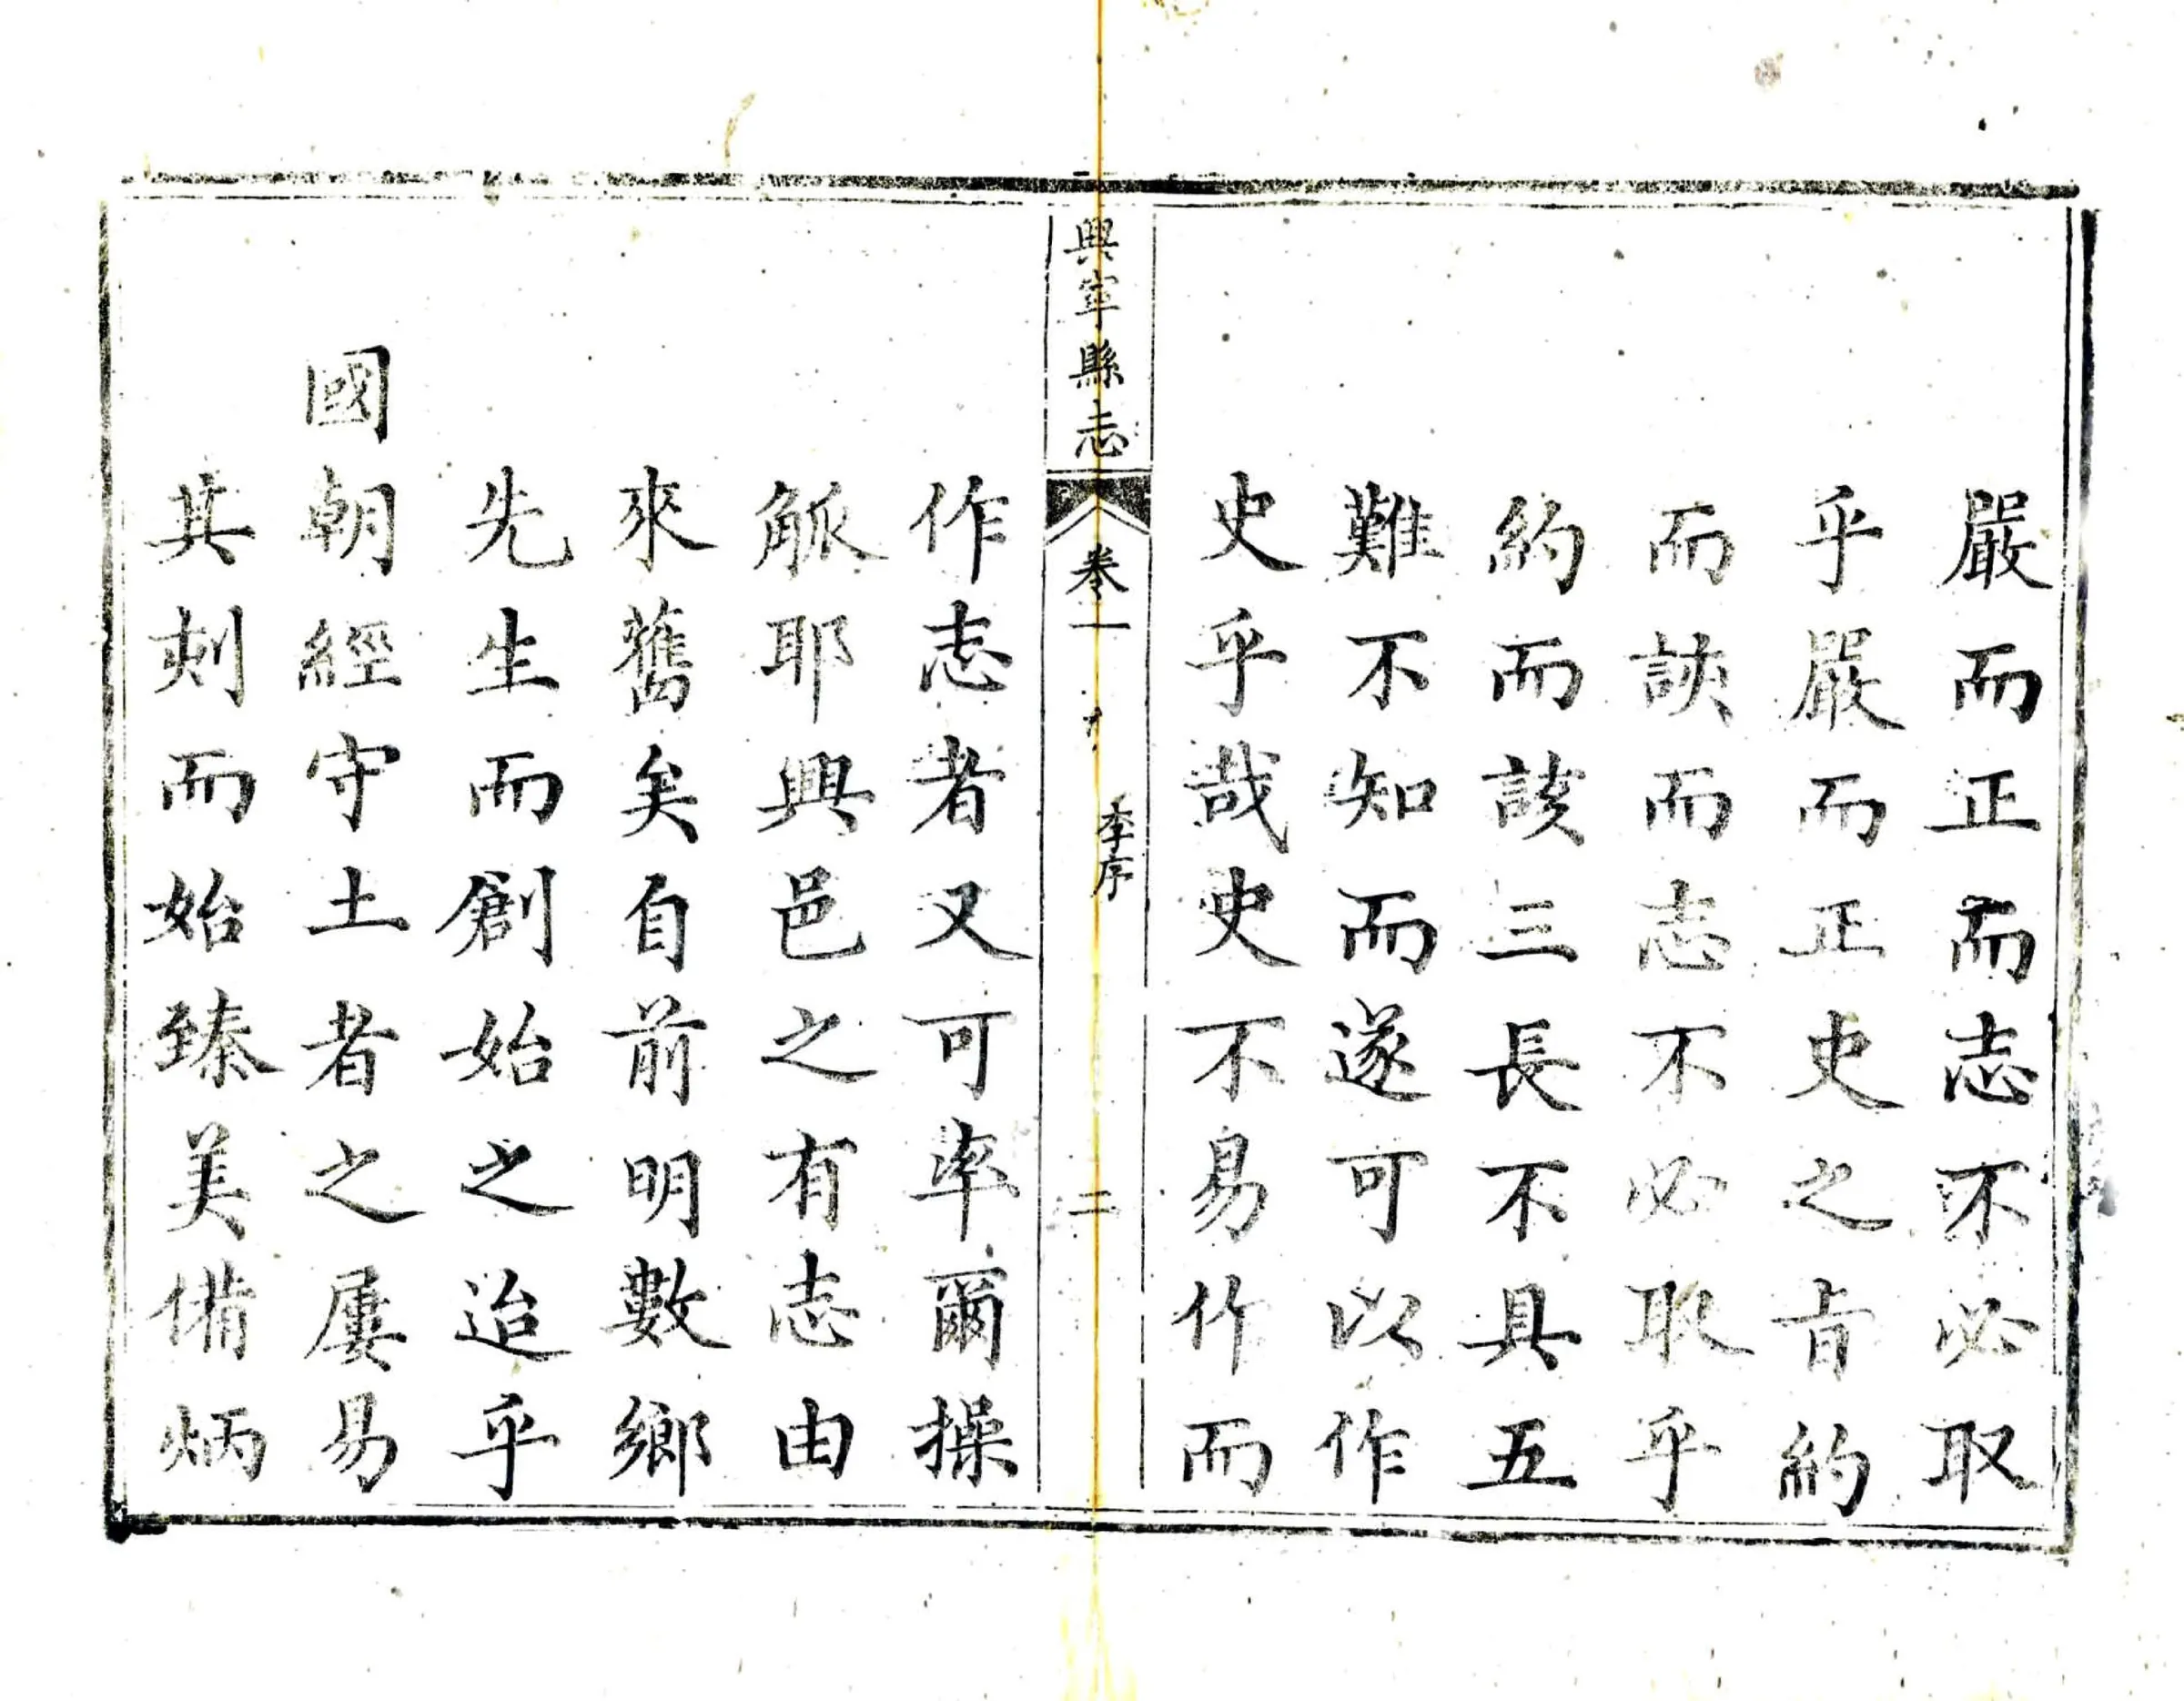 嚴而正而志不必取
乎嚴而正史之旨約
而該而志不必取乎
約而該三長不具五
難不知而遂可以作
史乎哉史不易作而
興寧縣志
卷一
李序
二
作志者又可率爾操
觚耶興邑之有志由
來舊矣自前明數鄉
先生而創始之迨乎
國朝經守土者之屢易
其刻而始臻美備炳